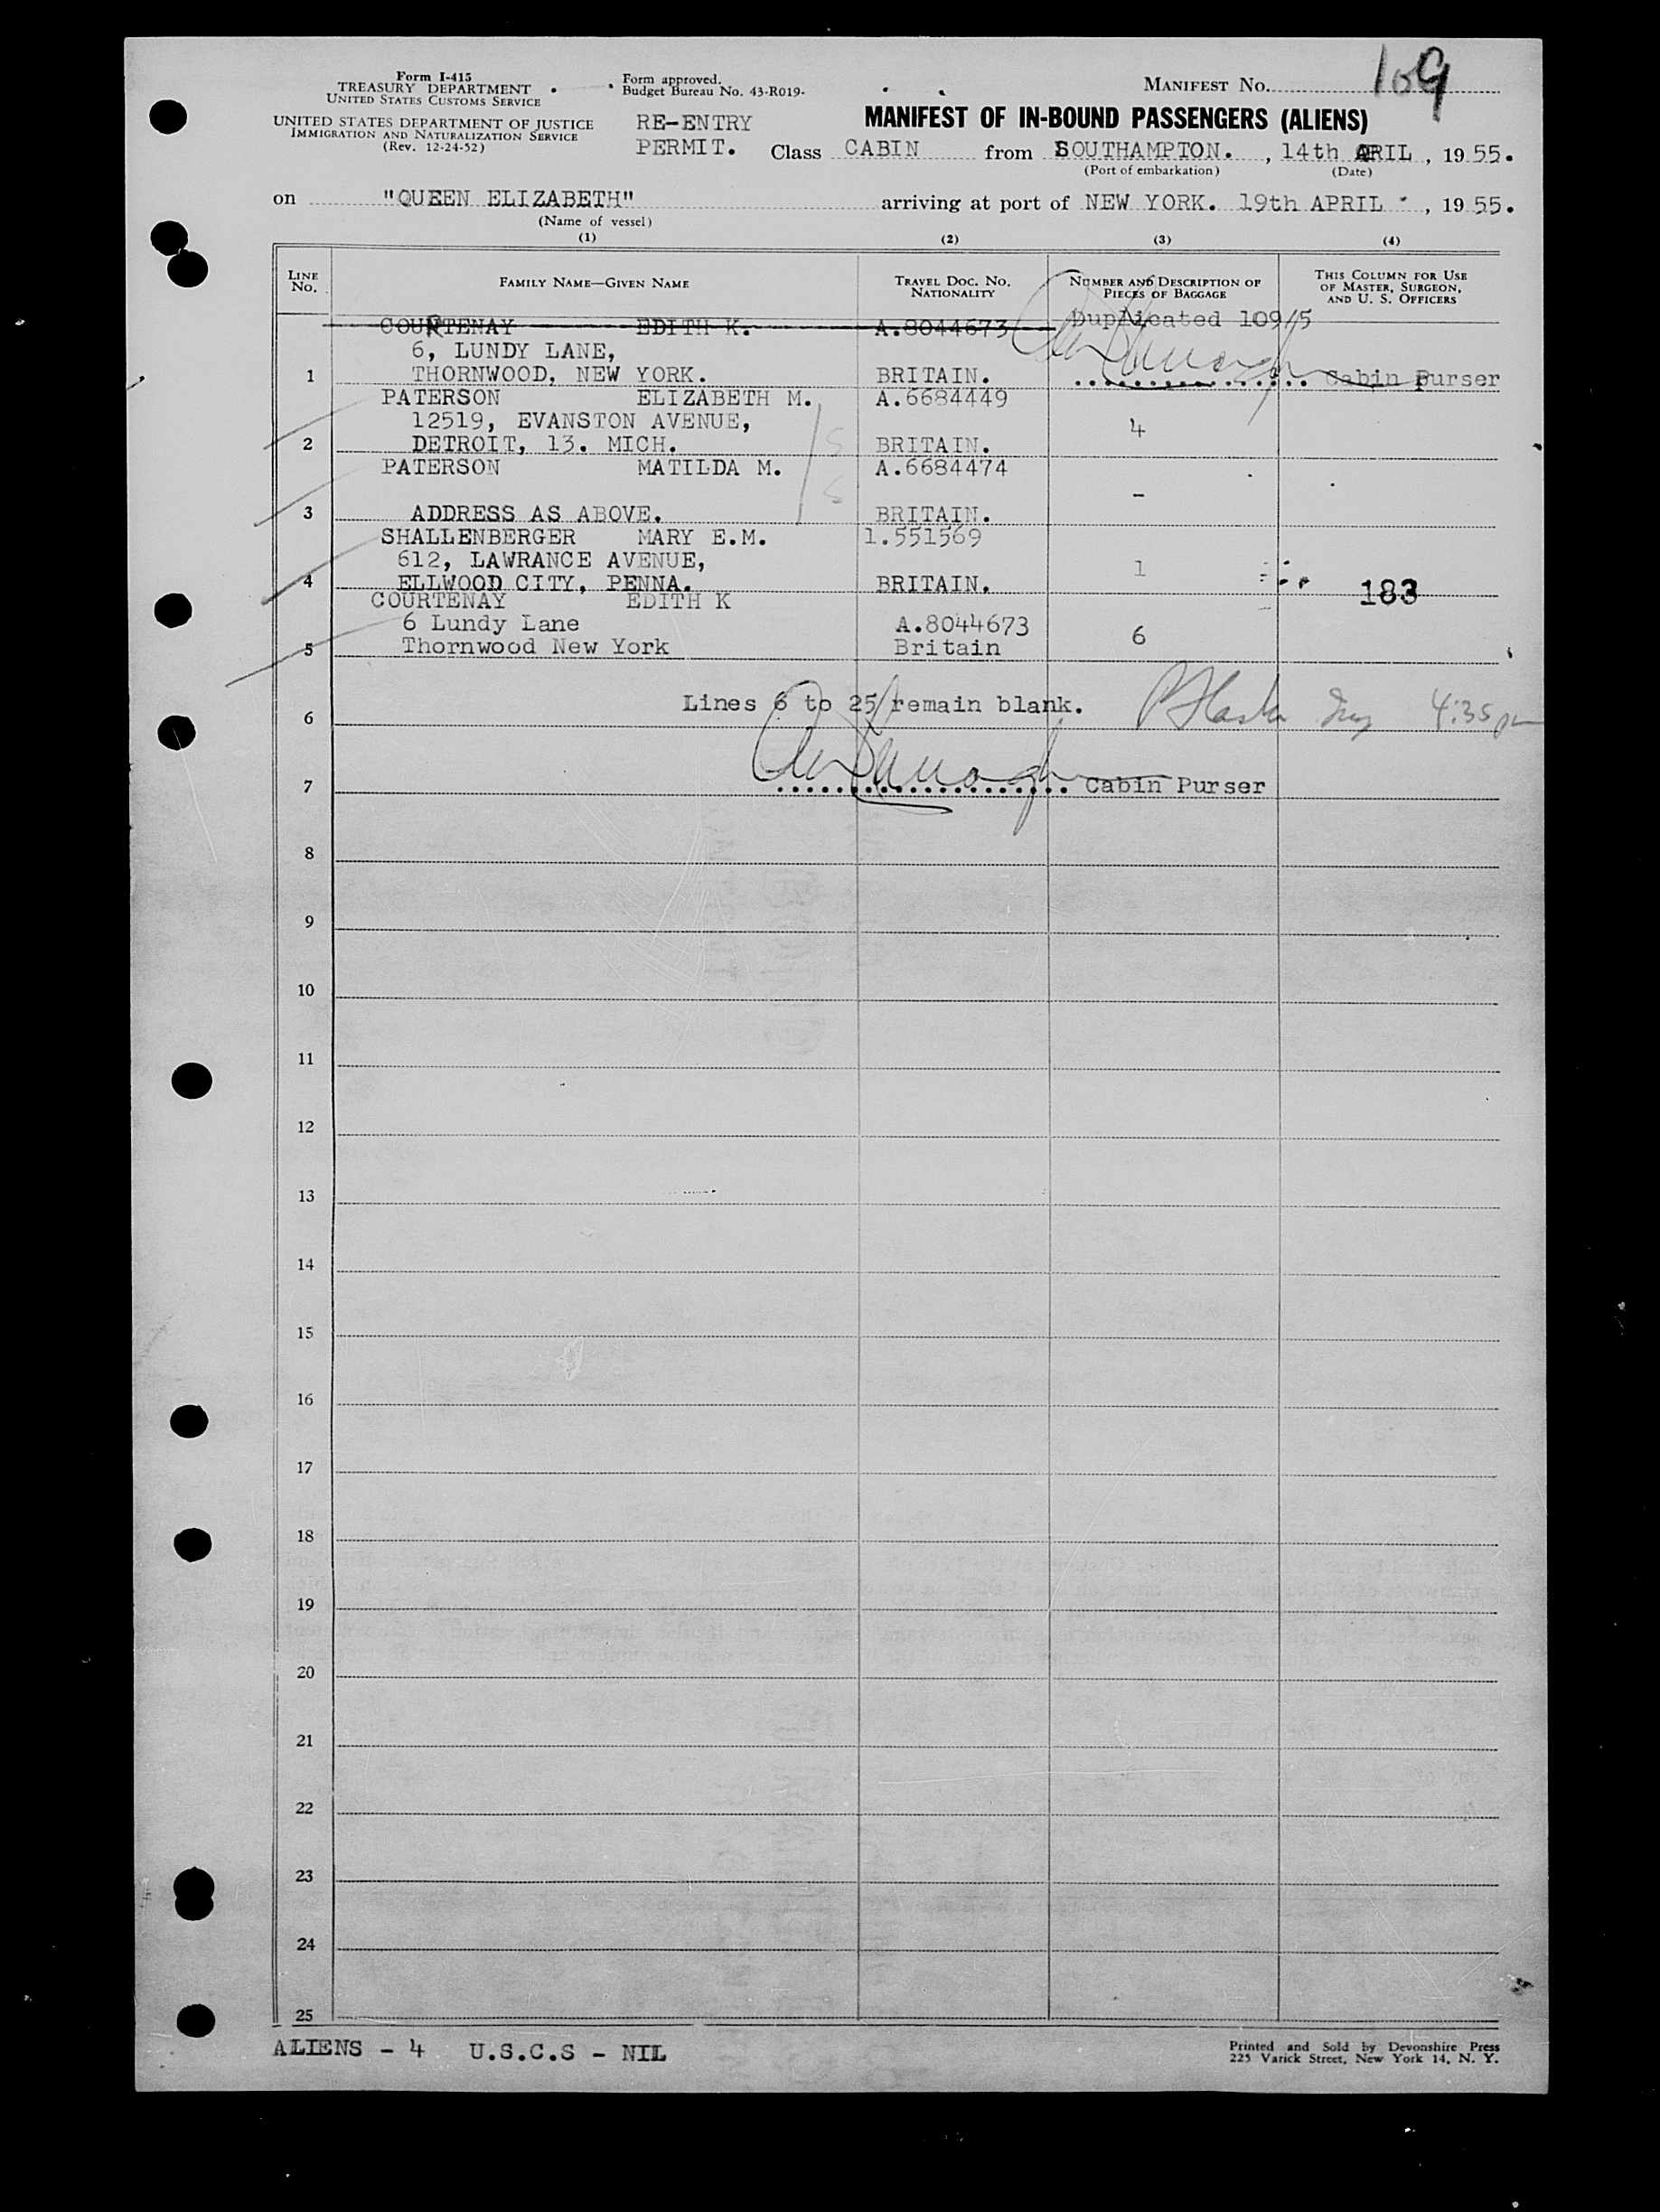 109
Form I-415
TREASURY DEPARTMENT
UNITED STATES CUSTOMS SERVICE
UNITED STATES DEPARTMENT OF JUSTICE
IMMIGRATION AND NATURALIZATION SERVICE
(Rev. 12-24-52)
Form approved.
Budget Bureau No. 43-R019-
MANIFEST No.
RE-ENTRY
PERMIT.
MANIFEST OF IN-BOUND PASSENGERS (ALIENS)
Class CABIN from SOUTHAMPTON. , 14th APRIL , 19 55.
(Port of embarkation) (Date)
on "QUEEN ELIZABETH" arriving at port of NEW YORK. 19th APRIL , 19 55.
(Name of vessel)
(1) (2) (3) (4)
LINE No. FAMILY NAME—GIVEN NAME TRAVEL DOC. No. NATIONALITY NUMBER AND DESCRIPTION OF PIECES OF BAGGAGE THIS COLUMN FOR USE OF MASTER, SURGEON, AND U. S. OFFICERS
COURTENAY EDITH K. A.8044673 Duplicated 109/5
6, LUNDY LANE,
1 THORNWOOD, NEW YORK. BRITAIN. Cabin Purser
PATERSON ELIZABETH M. A.6684449
12519, EVANSTON AVENUE, 4
2 DETROIT, 13. MICH. BRITAIN.
PATERSON MATILDA M. A.6684474
-
3 ADDRESS AS ABOVE. BRITAIN.
SHALLENBERGER MARY E.M. 1.551569
612, LAWRANCE AVENUE, 1
4 ELLWOOD CITY, PENNA. BRITAIN. 183
COURTENAY EDITH K
6 Lundy Lane A.8044673 6
5 Thornwood New York Britain
Lines 6 to 25 remain blank. 4:35 pm
6
7 Cabin Purser
8
9
10
11
12
13
14
15
16
17
18
19
20
21
22
23
24
25
ALIENS - 4 U.S.C.S - NIL
Printed and Sold by Devonshire Press
225 Varick Street, New York 14, N. Y.